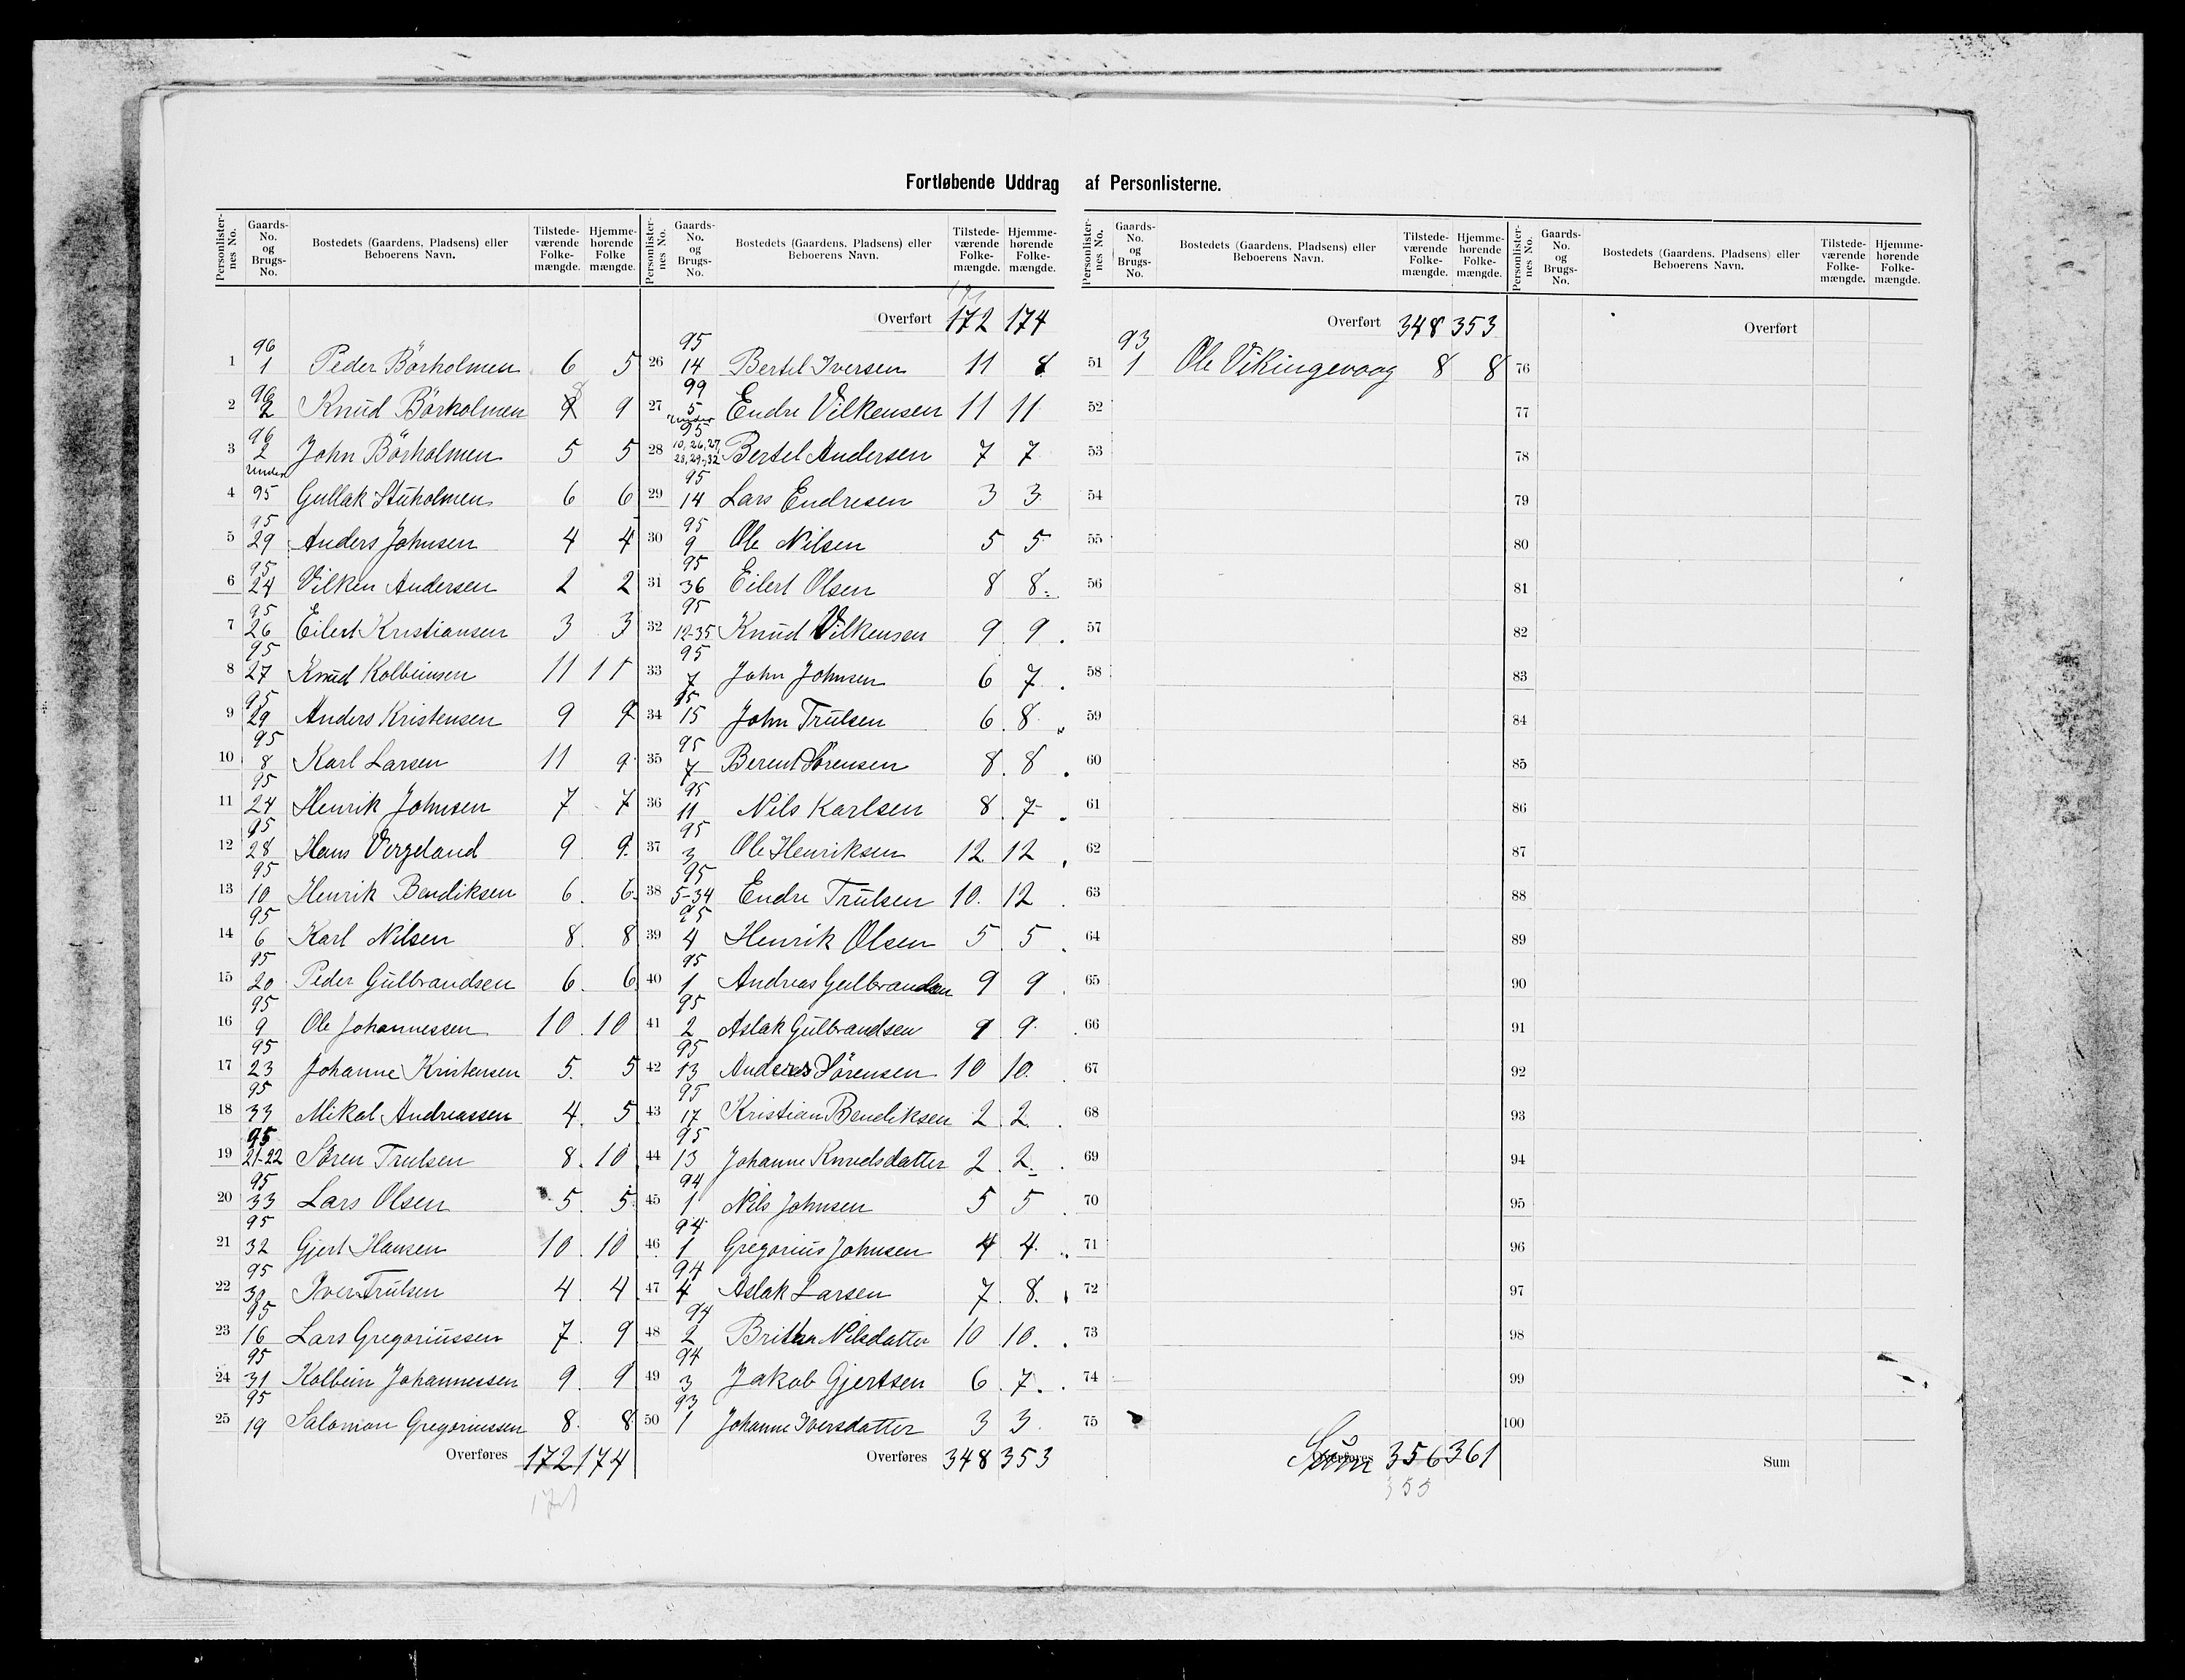 Fortløbende Uddrag af Personlisterne.
Personlister-nes No. Gaards-No. og Brugs-No. Bostedets (Gaardens, Pladsens) eller Beboerens Navn. Tilstede-værende Folke-mængde. Hjemme-hørende Folke mængde.
1 96 1 Peder Börholmen 6 5
2 96 2 Knud Börholmen 9 8 9
3 96 2 John Börholmen 5 5
4 under 95 Gullak Stuholmen 6 6
5 95 29 Anders Johnsen 4 4
6 95 24 Vilken Andersen 2 2
7 95 26 Eilert Kristiansen 3 3
8 95 27 Knud Kolbeinsen 11 11
9 95 29 Anders Kristensen 9 9
10 95 8 Karl Larsen 11 9
11 95 24 Henrik Johnsen 7 7
12 95 28 Hans Vergeland 9 9
13 95 10 Henrik Bendiksen 6 6
14 95 6 Karl Nilsen 8 8
15 95 20 Peder Gulbrandsen 6 6
16 95 9 Ole Johannessen 10 10
17 95 23 Johanne Kristensen 5 5
18 95 33 Mikal Andreassen 4 5
19 95 21-22 Sören Trulsen 8 10
20 95 33 Lars Olsen 5 5
21 95 32 Gjert Hansen 10 10
22 95 30 Iver Trulsen 4 4
23 95 16 Lars Gregoriussen 7 9
24 95 31 Kolbein Johannessen 9 9
25 95 19 Salomon Gregoriussen 8 8
Overføres 172 174
171
Personlister-nes No. Gaards-No. og Brugs-No. Bostedets (Gaardens, Pladsens) eller Beboerens Navn. Tilstede-værende Folke-mængde. Hjemme-hørende Folke-mængde.
171
Overført 172 174
26 95 14 Bertel Iversen 11 8
27 99 5 Endre Vilkensen 11 11
28 under 95 10, 26, 27, 28, 29, 32 Bertel Andersen 7 7
29 95 14 Lars Endresen 3 3
30 95 9 Ole Nilsen 5 5
31 95 36 Eilert Olsen 8 8
32 95 12-35 Knud Vilkensen 9 9
33 95 7 John Johnsen 6 7
34 95 15 John Trulsen 6 8
35 95 7 Berent Sörensen 8 8
36 95 11 Nils Karlsen 8 7
37 95 3 Ole Henriksen 12 12
38 95 5-34 Endre Trulsen 10 12
39 95 4 Henrik Olsen 5 5
40 95 1 Andreas Gulbrandsen 9 9
41 95 2 Aslak Gulbrandsen 9 9
42 95 13 Anders Sörensen 10 10
43 95 17 Kristian Bendiksen 2 2
44 95 13 Johanne Knudsdatter 2 2
45 94 1 Nils Johnsen 5 5
46 94 1 Gregorius Johnsen 4 4
47 94 4 Aslak Larsen 7 8
48 94 2 Britha Nilsdatter 10 10
49 94 3 Jakob Gjertsen 6 7
50 93 1 Johanne Iversdatter 3 3
Overføres 348 353
Personlister-nes No. Gaards-No. og Brugs-No. Bostedets (Gaardens, Pladsens) eller Beboerens Navn. Tilstede-værende Folke-mængde. Hjemme-hørende Folke-mængde.
Overført 348 353
51 93 1 Ole Vikingevaag 8 8
52
53
54
55
56
57
58
59
60
61
62
63
64
65
66
67
68
69
70
71
72
73
74
75
Overføres Sum 356 361
355
Personlister-nes No. Gaards-No. og Brugs-No. Bostedets (Gaardens, Pladsens) eller Beboerens Navn. Tilstede-værende Folke-mængde. Hjemme-hørende Folke-mængde.
Overført
76
77
78
79
80
81
82
83
84
85
86
87
88
89
90
91
92
93
94
95
96
97
98
99
100
Sum